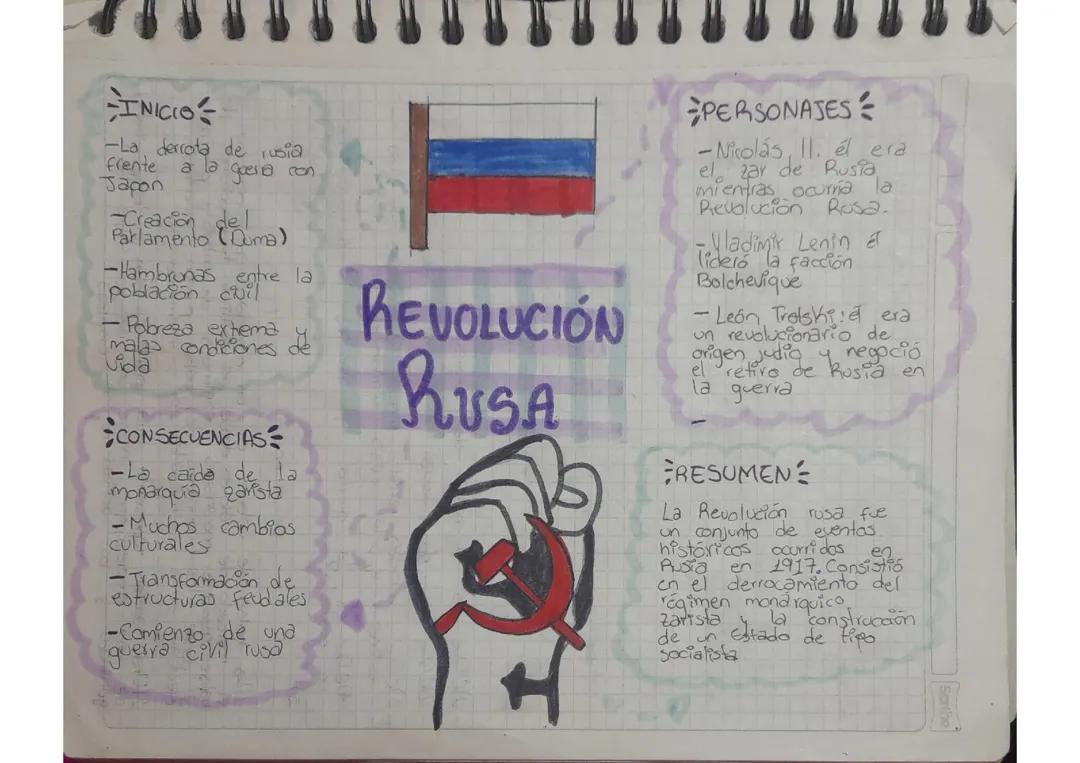 INICIO
-La derrota de rusia
frente a la guerra con
Japon
-Creación del
Parlamento (Duma)
-Hambrunas entre la
población civil
- Pobreza extrema y
malas condiciones de
vida
CONSECUENCIAS
-La caida de la
monarquía zarista
-Muchos cambios
culturales
-Transformación de
estructuras feudales
-Comienzo de una
guerra civil rusa
REVOLUCIÓN
RUSA
PERSONAJES
-Nicolás II. él era
el zar de Rusia
mientras ocurria la
Revolución Rusa.
-Vladimir Lenin él
lideró la facción
Bolchevique
- León Trotski: él era
un revolucionario de
origen judio y negoció
el retiro de Rusia en
la guerra
-
RESUMEN
La Revolución rusa fue
un conjunto de eventos
históricos ocurridos en
Rusia en 1917. Consistió
en el derrocamiento del
régimen monárquico
zarista y la construcción
de un Estado de tipo
socialista
Scribe